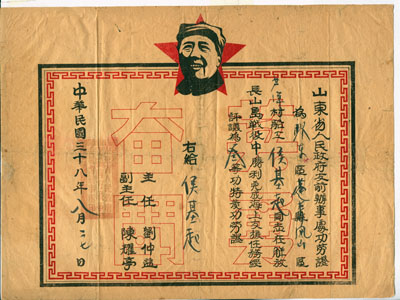 山東省人民政府支前辦事處功勞證
東區蓬萊縣鳳山區
村 侯基起同志在解放
長山島戰役中勝利完成海上支援任務經
評議為叁等功特發功勞證
右給 侯基起
主任 劉仲益
副主任 陳耀亭
中華民國三十八年八月二七日
奮鬥